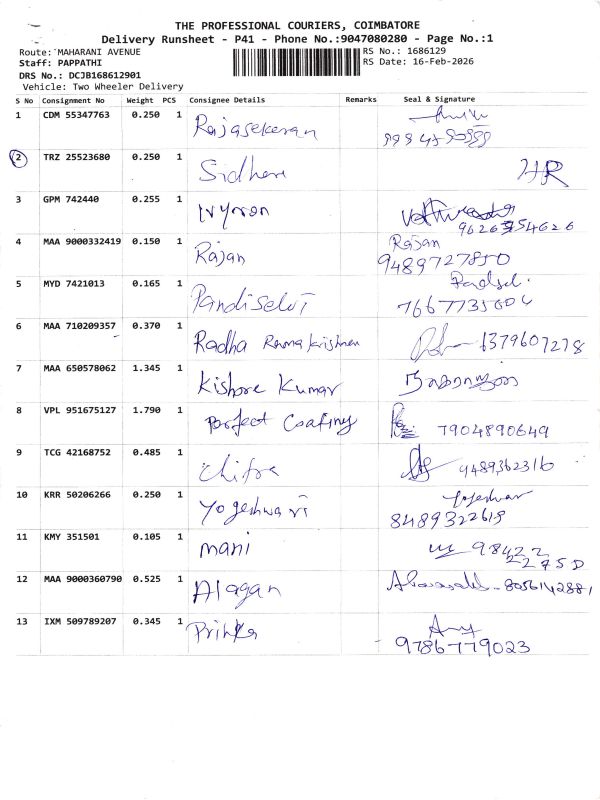 THE PROFESSIONAL COURIERS, COIMBATORE
Delivery Runsheet - P41 - Phone No.:9047080280 - Page No.:1
Route: MAHARANI AVENUE RS No.: 1686129
Staff: PAPPATHI RS Date: 16-Feb-2026
DRS No.: DCJB168612901
Vehicle: Two Wheeler Delivery
S No Consignment No Weight PCS Consignee Details Remarks Seal & Signature
1 CDM 55347763 0.250 1 Rajasekaran
2 TRZ 25523680 0.250 1 HR
3 GPM 742440 0.255 1
4 MAA 9000332419 0.150 1 Rajan Rajan
9489727850
5 MYD 7421013 0.165 1 Pandiselvi
6 MAA 710209357 0.370 1 Radha Ramakrishnan 6379607278
7 MAA 650578062 1.345 1 Kishore Kumar
8 VPL 951675127 1.790 1 Perfect Coating 7904890649
9 TCG 42168752 0.485 1 Chitra 9489362316
10 KRR 50206266 0.250 1 Yogeshwari Yogeshwar
8489322619
11 KMY 351501 0.105 1 mani 98422
12 MAA 9000360790 0.525 1 Alagan 8056142881
13 IXM 509789207 0.345 1
9786779023